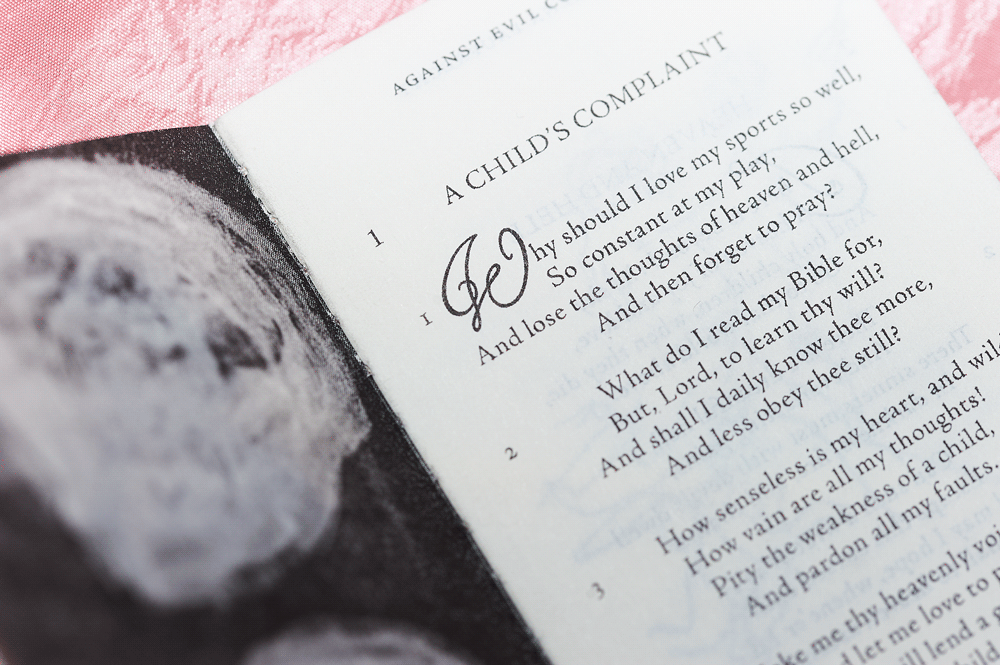 AGAINST EVIL
A CHILD'S COMPLAINT
1
Why should I love my sports so well,
So constant at my play,
And lose the thoughts of heaven and hell,
And then forget to pray?
1
What do I read my Bible for,
But, Lord, to learn thy will?
And shall I daily know thee more,
And less obey thee still?
2
How senseless is my heart, and wild
How vain are all my thoughts!
Pity the weakness of a child,
And pardon all my faults.
3
me thy heavenly
let me love to
lend a